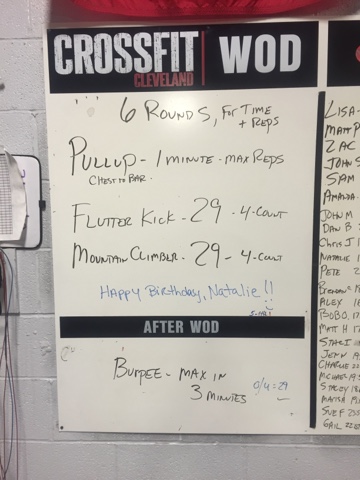 CROSSFIT WOD
CLEVELAND
6 ROUNDS, FOR TIME
+ REPS
PULLUP - 1 MINUTE - MAX REPS
CHEST TO BAR.
FLUTTER KICK - 29 - 4-COUNT
MOUNTAIN CLIMBER - 29 - 4-COUNT
HAPPY BIRTHDAY, NATALIE !!
AFTER WOD
BURPEE - MAX IN
3 MINUTES
LISA
MATT P
ZAC
JOHN S
SAM
AMANDA
JOHN M
DAN B
CHRIS J
NATALIE
PETE
ALEX
BOBO
MATT H
STACI
JENN
CHARLIE
MICHAEL
STACEY
MARSHA
SUE F
GAIL